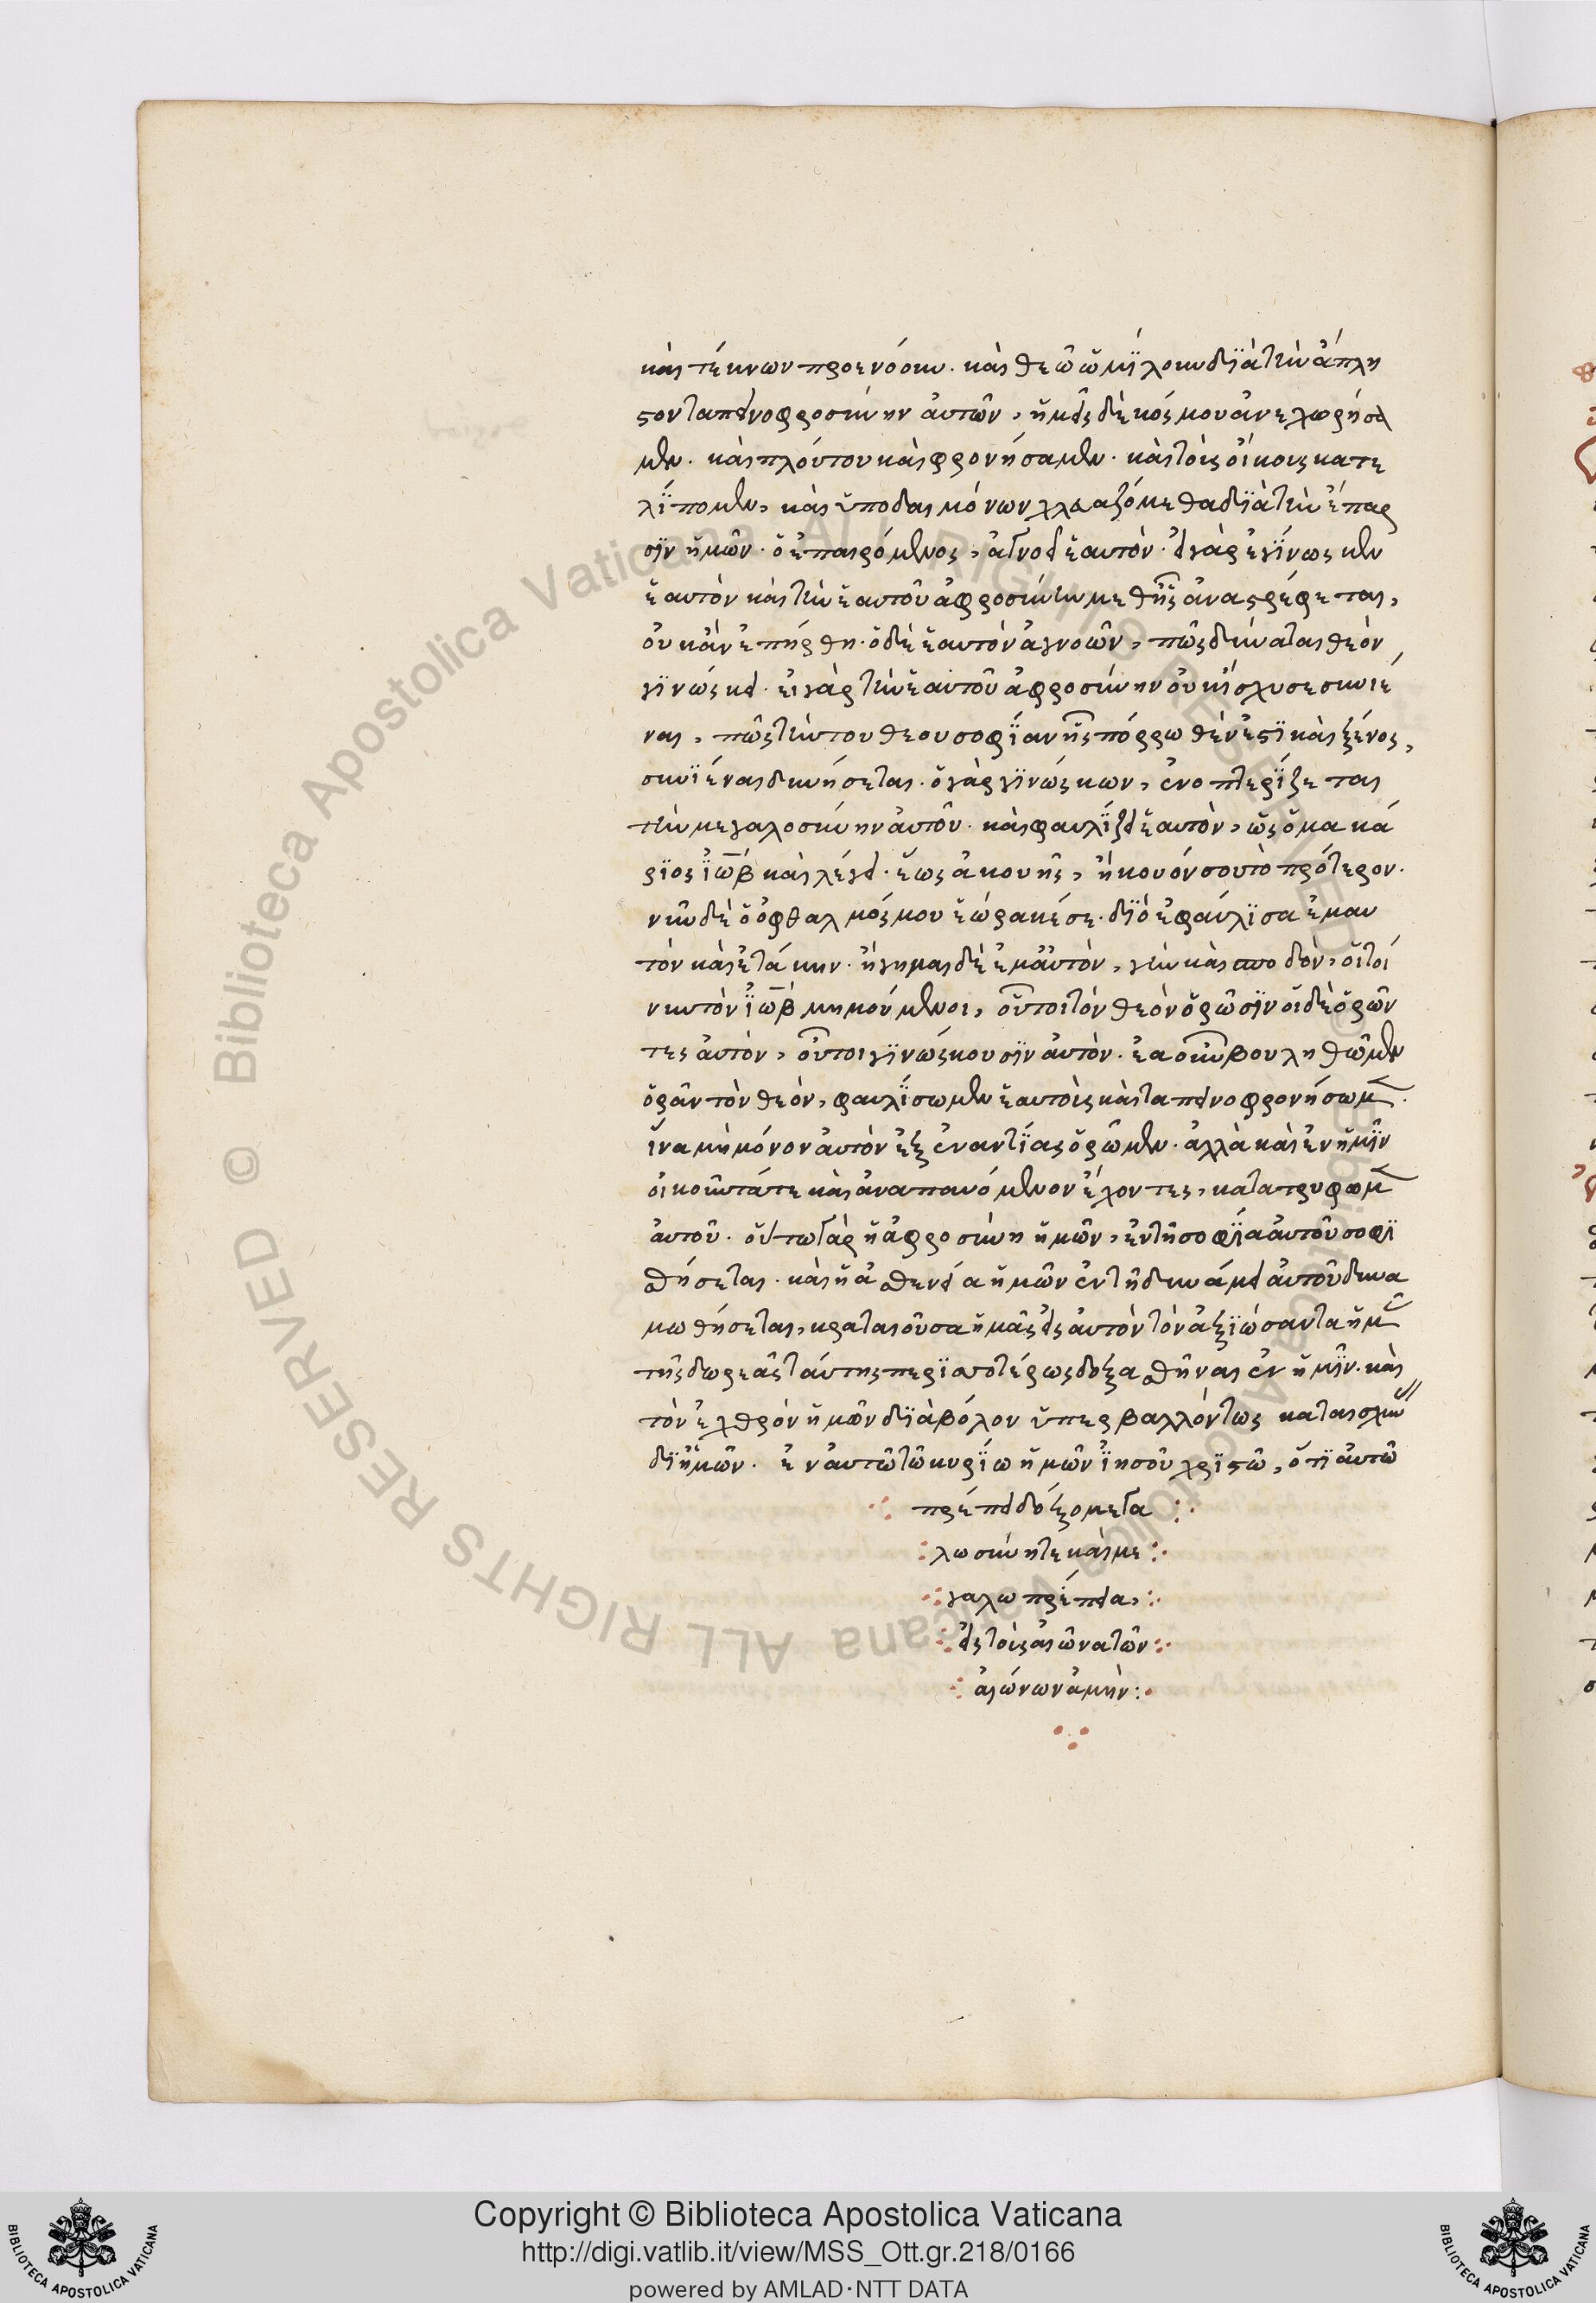 καὶ τέκνων προενόουν. καὶ θεῶ ὡμίλουν διὰ τὴν ἄπλη
στον ταπεινοφροσύνην αὐτῶν, ἡμεῖς δὲ κόσμου ἀνεχωρήσα
μεν. καὶ πλούτου καὶ φρονήσαμεν. καὶ τοῖς οἴκοις κατε
λίπομεν, καὶ ὑπὸ δαιμόνων χλευαζόμεθα διὰ τὴν ἔπαρ
σιν ἡμῶν. ὁ ἐπαιρόμενος, ἀγνοεῖ ἑαυτὸν. εἰ γὰρ ἐγίνωσκεν
ἑαυτὸν καὶ τὴν ἑαυτοῦ ἀφροσύνην μεθ' ἧς ἀναστρέφεται,
οὐκ ἂν ἐπήρθη. ὁ δὲ ἑαυτὸν ἀγνοῶν, πῶς δύναται θεὸν
γινώσκει. εἰ γὰρ τὴν ἑαυτοῦ ἀφροσύνην οὐκ ἴσχυσε συνιέ
ναι, πῶς τὴν του θεου σοφίαν ἧς πόρρωθέν ἐστι καὶ ξένος,
συνιέναι δυνήσεται. ὁ γὰρ γινώσκων, ἐνοπτερίζεται
τὴν μεγαλοσύνην αὐτοῦ. καὶ φαυλίζει ἑαυτὸν, ὡς ὁ μακά
ριος ἰὼβ καὶ λέγει. ἕως ἀκουῆς, ἤκουόν σου τὸ πρότερον.
νῦν δὲ ὁ ὀφθαλμός μου ἑώρακέ σε. διὸ ἐφαύλισα ἐμαυ
τὸν καὶ ἐτάκην. ἥγημαι δὲ ἐμαυτὸν, γῆν καὶ σποδόν, οἱ τοί
νυν τὸν ἰὼβ μιμούμενοι, οὗτοι τὸν θεὸν ὁρῶσιν οἱ δὲ ὁρῶν
τες αὐτὸν, οὗτοι γινώσκουσιν αὐτόν. ἐὰ οὖν βουληθῶμεν
ὁρᾶν τὸν θεὸν, φαυλίσωμεν ἑαυτοὶς καὶ ταπεινοφρονήσωμεν.
ἵνα μὴ μόνον αὐτὸν ἐξ ἐναντίας ὁρῶμεν. ἀλλὰ καὶ ἐν ἡμῖν
οἰκοῦντά τε καὶ ἀναπαυόμενον ἔχοντες, κατατρυφῶμεν
αὐτοῦ. οὕτω γὰρ ἡ ἀφροσύνη ἡμῶν, ἐν τῆ σοφία αὐτοῦ σοφι
σθήσεται. καὶ ἡ ἀσθενεία ἡμῶν ἐν τῆ δυνάμει αὐτοῦ δυνα
μωθήσεται, κραταιοῦσα ἡμᾶς εἰς αὐτὸν τὸν ἀξιώσαντα ἡμᾶς
τῆς δωρεᾶς ταύτης περισσοτέρως δοξασθῆναι ἐν ἡμῖν. καὶ
τὸν ἐχθρὸν ἡμῶν διάβολον ὑπερβαλλόντως καταισχύνειν
δι' ἡμῶν. ἐν αὐτῶ τῶ κυρίω ἡμῶν ἰησοῦ χριστῶ, ὅτι αὐτῶ
πρέπει δόξο μεγα
λωσύνη τε καὶ με
γαλωπρέπεια,
εἰς τοὺς αἰῶνα τῶν
αἰώνων ἀμήν:
Copyright © Biblioteca Apostolica Vaticana
http://digi.vatlib.it/view/MSS_Ott.gr.218/0166
powered by AMLAD·NTT DATA
BIBLIOTECA APOSTOLICA VATICANA
BIBLIOTECA APOSTOLICA VATICANA
© Biblioteca Apostolica Vaticana ALL RIGHTS RESERVED
© Biblioteca Apostolica Vaticana ALL RIGHTS RESERVED